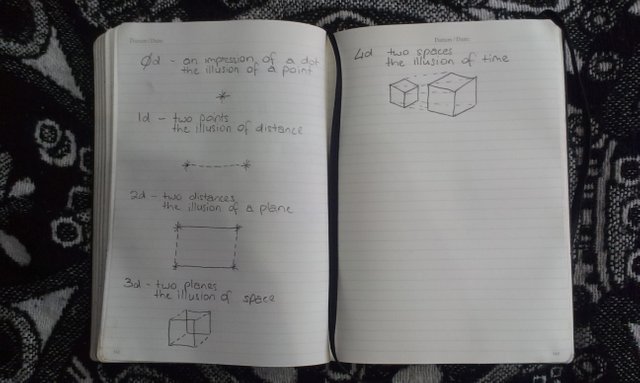 Datum / Date:
Ød - an impression of a dot
the illusion of a point
1d - two points
the illusion of distance
2d - two distances
the illusion of a plane
3d - two planes
the illusion of space
Datum / Date:
4d two spaces
the illusion of time